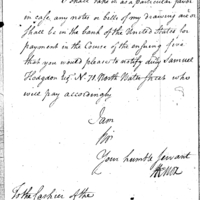 I shall take it as a particular favor
in case any notes or bills of my drawing are or
shall be in the bank of the United States for
payment in the Course of the ensuing five
that you would please to notify Samuel
Hodgdon Esq N. 70. North Water Street who
will pay accordingly
I am
Sir
Your humble Servant
To the Cashier of the